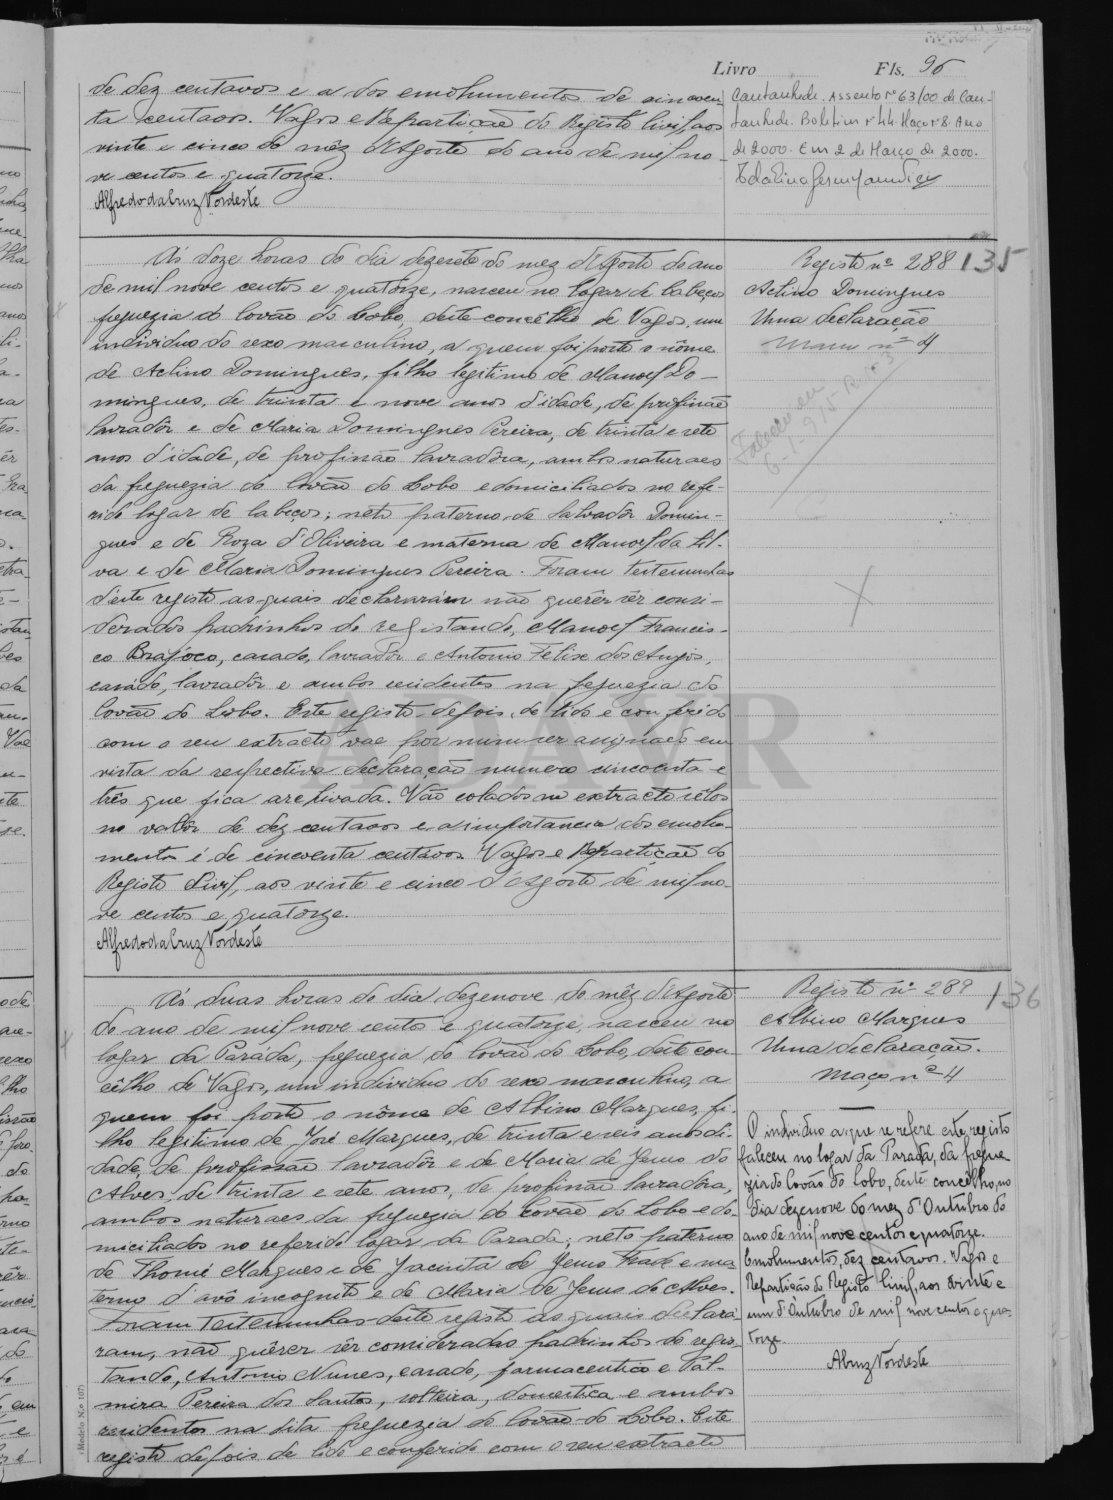 Livro Fls. 96
de dez centavos e a dos emolumentos de cincoen
ta centavos. Vagos e Repartição do Registo Civil, aos
vinte e cinco do mêz d'Agosto do ano de mil no-
ve centos e quatorze.
Alfredo da Cruz Nordeste
Cantanhede. Assento nº 63/00 de Can-
tanhede. Boletim nº 44. Maço nº 8. Ano
de 2000. Em 2 de Março de 2000.
Ás doze horas do dia dezesete do mez d'Agosto do ano
de mil nove centos e quatorze, nasceu no logar de Cabeços
freguezia do Covão do Lobo, deste concêlho de Vagos, um
individuo do sexo masculino, a quem foi posto o nôme
de Aclino Domingues, filho legitimo de Manoel Do-
mingues, de trinta e nove anos d'idade, de profissão
lavradôr e de Maria Domingues Pereira, de trinta e sete
anos d'idade, de profissão lavradôra, ambos naturaes
da freguezia do Covão do Lobo e domiciliados no refe-
rido logar de Cabeços; neto paterno de Salvadôr Domin-
gues e de Roza d'Oliveira e materna de Manoel da Sil-
va e de Maria Domingues Pereira. Foram testemunhas
d'este registo as quais declararam não querêr sêr consi-
derados padrinhos do registando, Manoel Francis-
co Brajôco, casado, lavradôr e Antonio Felix dos Anjos,
casado, lavradôr e ambos residentes na freguezia do
Covão do Lobo. Este registo depois de lido e conferido
com o seu extracto vae por mim ser assignado em
vista da respectiva declaração numero cincoenta e
três que fica archivada. Vão colados no extracto sêlos
no valôr de dez centavos e a importancia dos emolu-
mentos é de cincoenta centavos. Vagos e Repartição do
Registo Civil, aos vinte e cinco d'Agosto de mil no-
ve centos e quatorze.
Alfredo da Cruz Nordeste
Registo nº 288 135
Aclino Domingues
Uma declaração
Maço nº 4
Faleceu em
6-1-915
Ás duas horas do dia dezenove do mêz d'Agosto
do ano de mil nove centos e quatorze, nasceu no
logar da Paráda, freguezia do Covão do Lobo, deste con-
cêlho de Vagos, um individuo do sexo masculino, a
quem foi posto o nôme de Albino Marques, fi-
lho legitimo de José Marques, de trinta e seis anos di-
dade, de profissão lavradôr e de Maria de Jesus do
Alves, de trinta e sete anos, de profissão lavradôra,
ambos naturaes da freguezia do Covão do Lobo e do-
miciliados no referido logar da Parada; neto paterno
de Thomé Marques e de Jacinta de Jesus Frade e ma
terno d'avô incognito e de Maria de Jesus do Alves.
Foram testemunhas deste registo as quais declara
ram, não quêrer sêr considerados padrinhos do regis-
tando, Antonio Nunes, casado, farmaceutico e Pal-
mira Pereira dos Santos, solteira, domestica e ambos
residentes na dita freguezia do Covão do Lobo. Este
registo depois de lido e conferido com o seu extracto
Registo nº 289 136
Albino Marques
Uma declaração.
Maço nº 4
O individuo a que se refere este registo
faleceu no logar da Parada, da fregue
zia do Covão do Lobo, deste concêlho, no
dia dezenove do mez d'Outubro do
ano de mil nove centos e quatorze.
Emolumentos, dez centavos. Vagos e
Repartição do Registo Civil, aos vinte e
um d'Outubro de mil nove centos e qua-
torze.
ACruz Nordeste
(Modelo N.º 107)